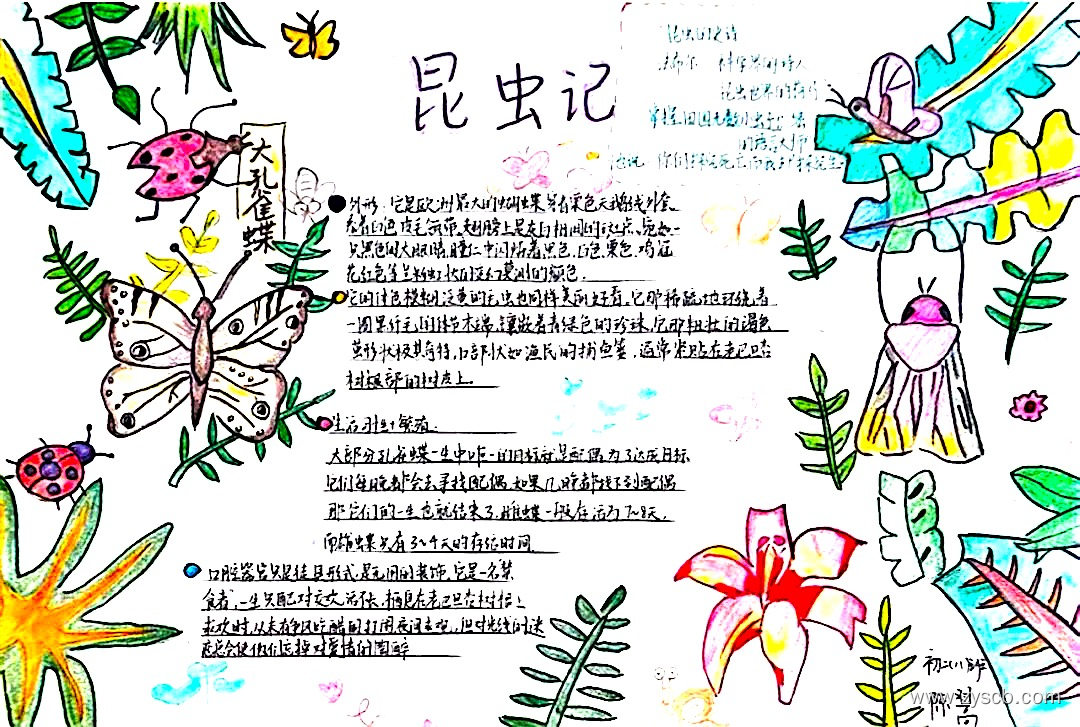 昆虫记
昆虫的史诗
法布尔 科学界的诗人
昆虫世界的荷马
大孔雀蝶
外形:它是欧洲最大的蝴蝶,穿着栗色天鹅绒外套、
系着白色皮毛领带,翅膀上是灰白相间的斑点、宛如一
只黑色的大眼睛,瞳仁中闪烁着黑色、白色、栗色、鸡冠
花红色等
它的体色模糊泛黄的毛虫也同样美丽好看,它那稀疏地环绕着
一圈黑纤毛的体节末端,镶嵌着青绿色的珍珠,它那粗壮的褐色
茧形状极其奇特,口部状如渔民的捕鱼篓,通常紧贴在老巴旦杏
树根部的树皮上。
生活习性+繁殖:
大部分孔雀蝶一生中唯一的目标就是配偶为了达成目标
它们每晚都会去寻找配偶,如果几晚都找不到配偶
那它们的一生也就结束了,雌蝶一般存活为7~8天,
而雄蝶只有3~4天的存活时间
口腔器官只是徒具形式,是无用的装饰,它是一名禁
食者,一生只配对交欢 流传,栖息在老巴旦杏树信上
求欢时,从未争风吃醋的打闹
总会使他们忘掉对爱情的陶醉
初二(8)
www.zyscb.com